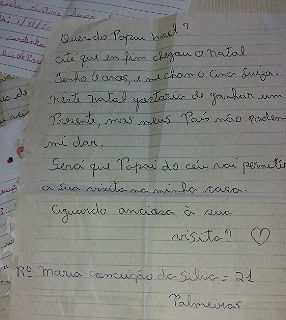 Querido Papai noel?
até que en fim chegou o natal.
Tenho 6 anos, e me chamo Ana Luiza.
neste natal gostaria de ganhar um
Presente, mas meus Pais não podem
me dar.
Será que Papai do céu vai permitir
a sua visita na minha casa.
Aguardo anciosa à sua
visita?
Rº Maria conceição da Silva = 21
Palmeiras